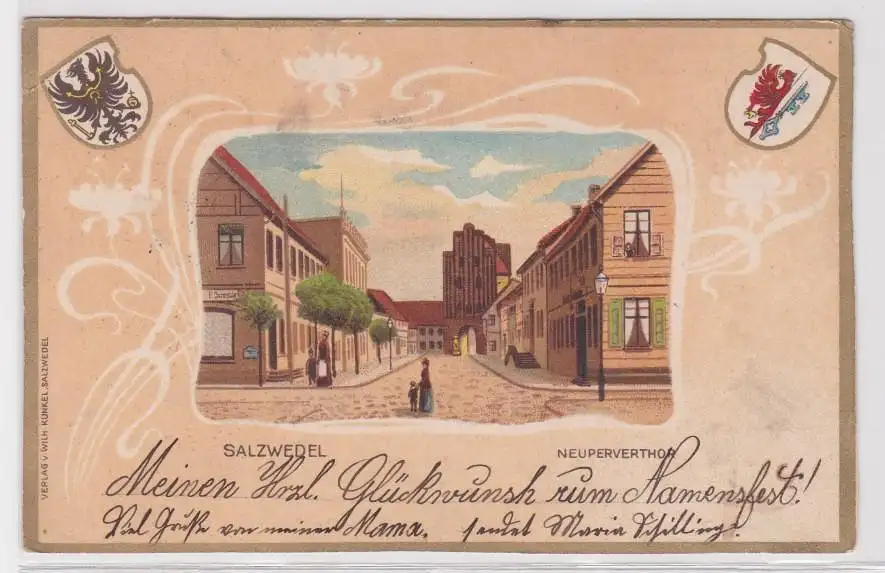 VERLAG v. WILH. KÜNKEL, SALZWEDEL
SALZWEDEL
NEUPERVERTHOR
Meinen Hrzl. Glückwunsh zum Namensfest!
Viel Grüße von meiner Mama. sendet Maria Schilling.